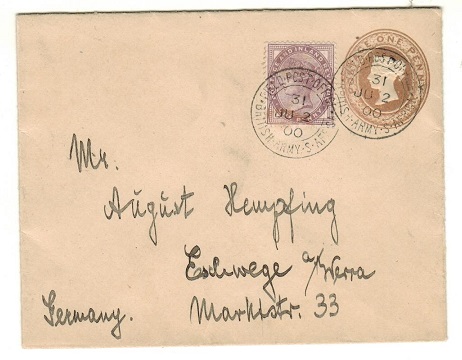 POSTAGE AND INLAND REVENUE
FIELD·POST·OFFICE
31
JU 2
00
BRITISH·ARMY·S·AFRICA
ONE PENNY
31
JU 2
00
ARMY·S·AFRICA
Mr.
August Hempfing
Eschwege a/Werra
Germany. Marktstr. 33